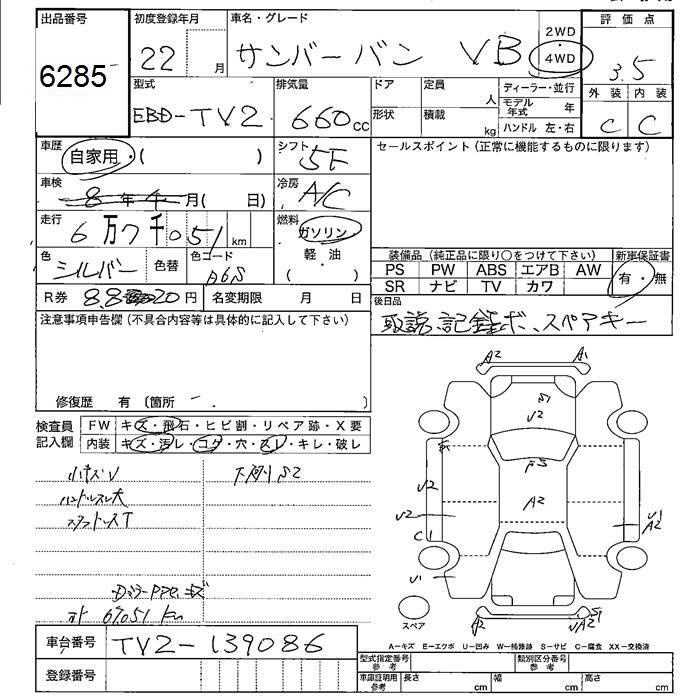 出品番号 初度登録年月 車名・グレード 評価点
6285 22 月 サンバーバン VB 2WD・4WD 3.5
型式 排気量 ドア 定員 人 ディーラー・並行 外装 内装
EBD-TV2 660 cc 形状 積載 kg モデル年式 年 C C
ハンドル 左・右
車歴 自家用・( ) シフト 5F セールスポイント(正常に機能するものに限ります)
車検 8年4月( 日) 冷房 A/C
走行 6万7千051 km 燃料 ガソリン・軽油( ・ )
色 シルバー 色替 色コード A6S 装備品(純正品に限り○をつけて下さい) 新車保証書
PS PW ABS エアB AW 有・無
SR ナビ TV カワ
R券 円 名変期限 月 日 後日品
取説、記録ボ、スペアキー
注意事項申告欄(不具合内容等は具体的に記入して下さい)
修復歴 有 〔箇所 - . 〕
検査員記入欄 FW キズ・飛石・ヒビ割・リペア跡・X要
内装 キズ・汚レ・コゲ・穴・スレ・キレ・破レ
小キズV 下廻りS2
ハンドルスレ大
スタッドレスT
67051 km
A2 A1
S1
V2
FS
V2 A2
V2 V1
C1 A2
V1
スペア A2 S1
VA2
A-キズ E-エクボ U-凹み W-補修跡 S-サビ C-腐食 XX-交換済
車台番号 TV2-139086
型式指定番号参考 類別区分番号参考
登録番号 車庫証明用参考 長さ cm 幅 cm 高さ cm